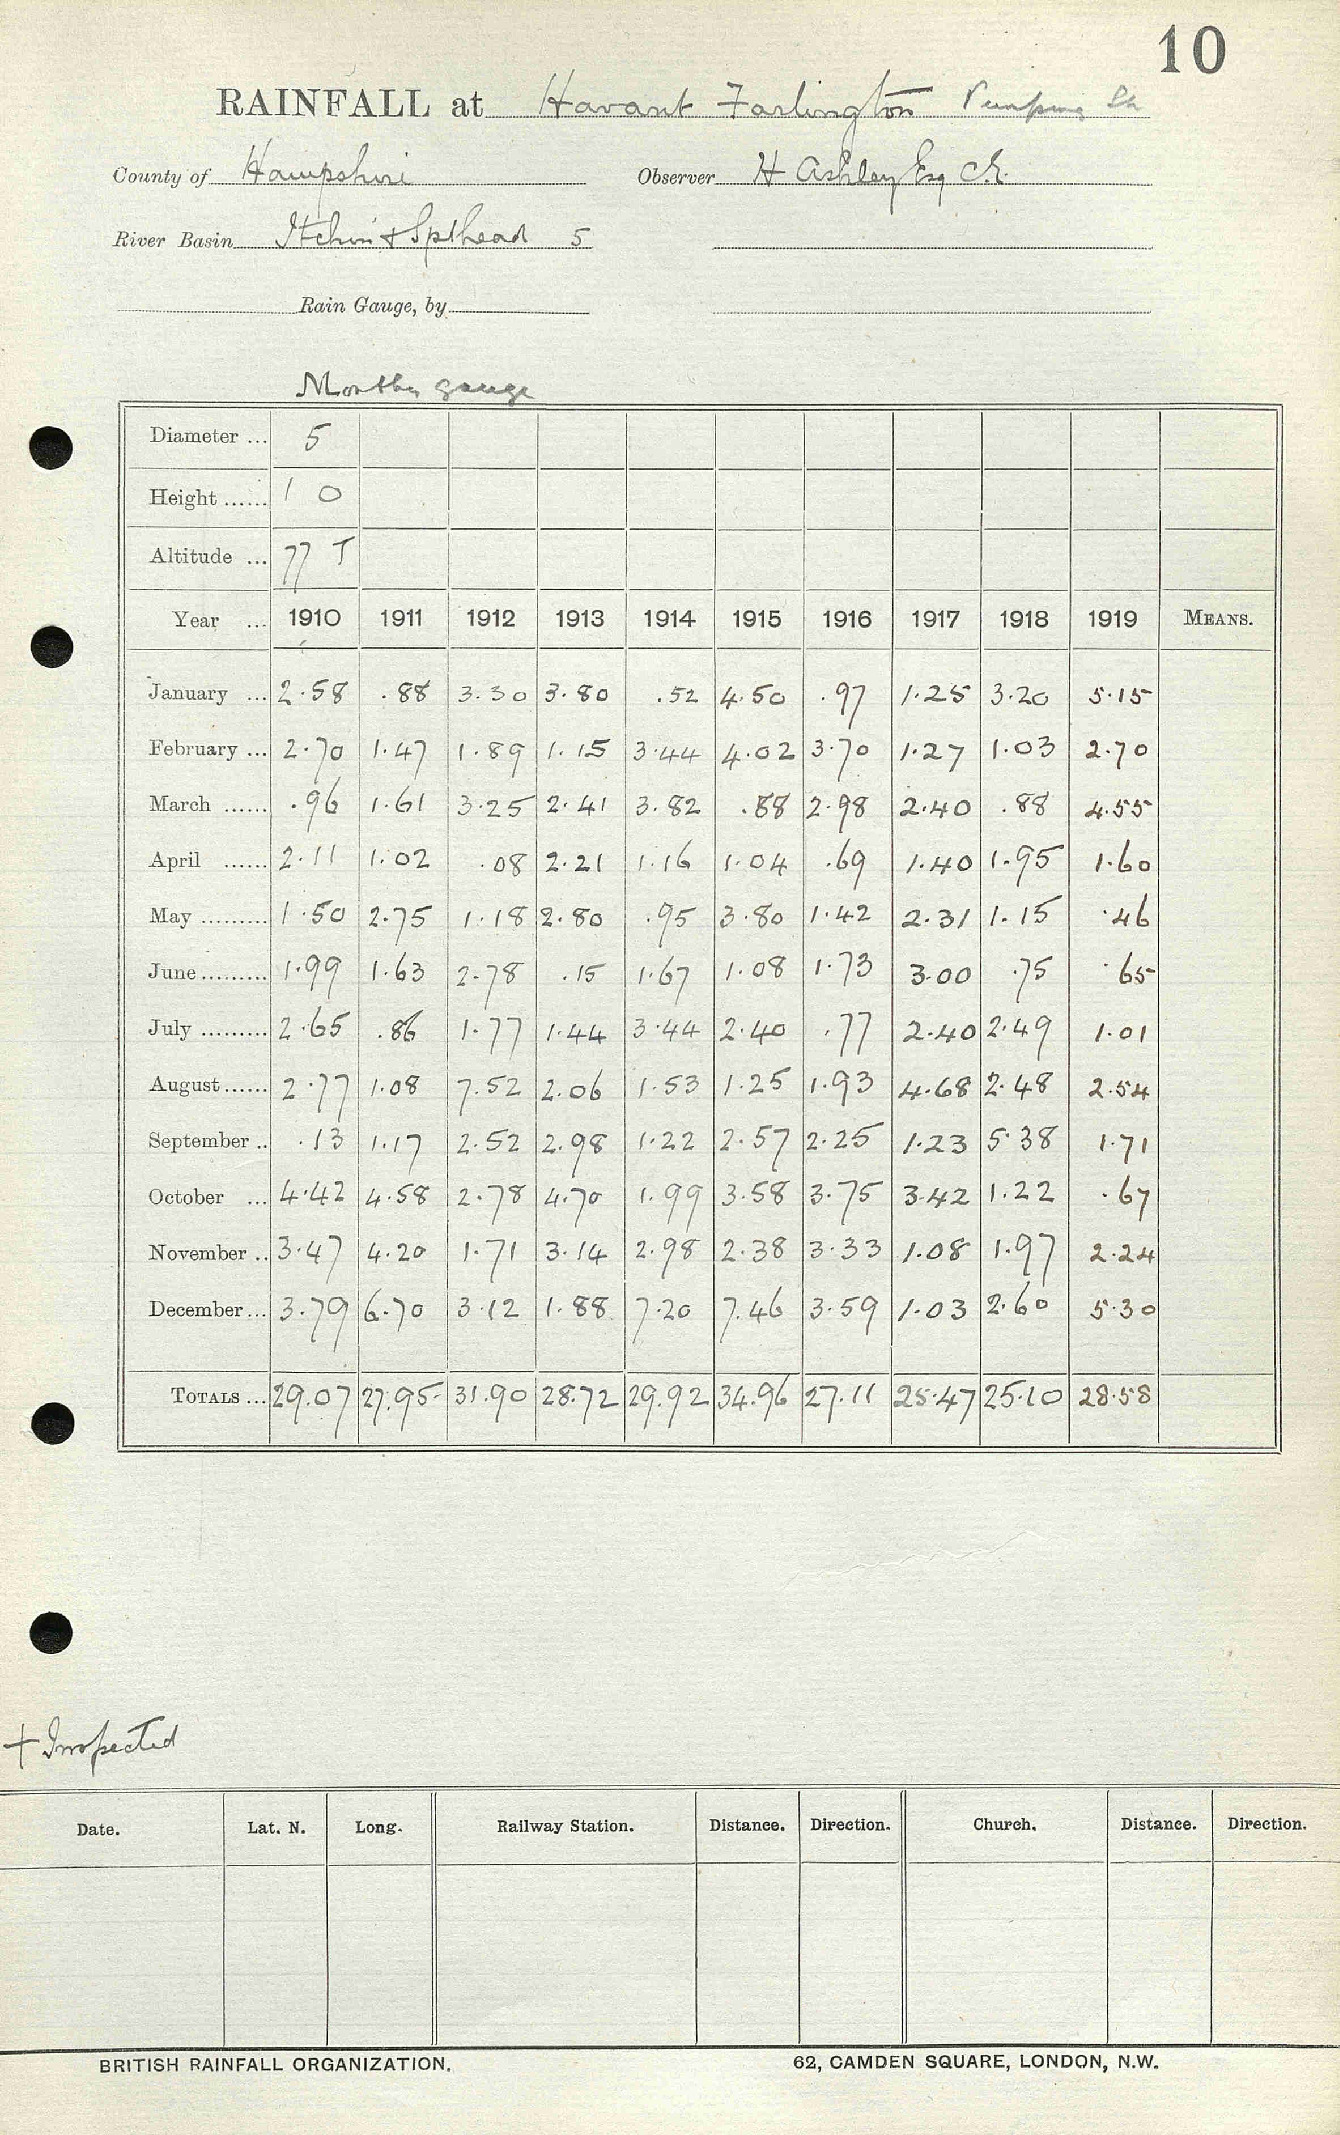 10
RAINFALL at Havant Farlington Pumping Sta
County of Hampshire Observer H Ashley Esq C.E.
River Basin Itchin & Spthead 5
Rain Gauge, by
Monthly gauge
Diameter ... 5
Height ...... 1 0
Altitude ... 77 T
Year ... 1910 1911 1912 1913 1914 1915 1916 1917 1918 1919 MEANS.
January ... 2.58 .88 3.30 3.80 .52 4.50 .97 1.25 3.20 5.15
February ... 2.70 1.47 1.89 1.15 3.44 4.02 3.70 1.27 1.03 2.70
March ...... .96 1.61 3.25 2.41 3.82 .88 2.98 2.40 .88 4.55
April ...... 2.11 1.02 .08 2.21 1.16 1.04 .69 1.40 1.95 1.60
May ......... 1.50 2.75 1.18 2.80 .95 3.80 1.42 2.31 1.15 .46
June ......... 1.99 1.63 2.78 .15 1.67 1.08 1.73 3.00 .75 .65
July ......... 2.65 .86 1.77 1.44 3.44 2.40 .77 2.40 2.49 1.01
August ...... 2.77 1.08 7.52 2.06 1.53 1.25 1.93 4.68 2.48 2.54
September .. .13 1.17 2.52 2.98 1.22 2.57 2.25 1.23 5.38 1.71
October ... 4.42 4.58 2.78 4.70 1.99 3.58 3.75 3.42 1.22 .67
November .. 3.47 4.20 1.71 3.14 2.98 2.38 3.33 1.08 1.97 2.24
December ... 3.79 6.70 3.12 1.88 7.20 7.46 3.59 1.03 2.60 5.30
TOTALS ... 29.07 27.95 31.90 28.72 29.92 34.96 27.11 25.47 25.10 28.58
+ Inspected
Date. Lat. N. Long. Railway Station. Distance. Direction. Church. Distance. Direction.
BRITISH RAINFALL ORGANIZATION. 62, CAMDEN SQUARE, LONDON, N.W.